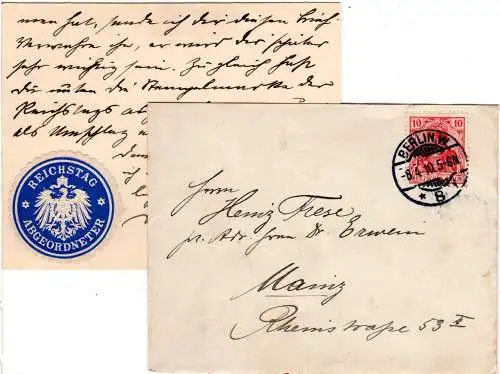 men hat, sende ich dir diesen Brief
Verwahre ihn, er wird dir später
sehr wichtig sein. Zugleich hast
du unten die Stempelmarke der
Reichstags
als Umschlag
REICHSTAG
ABGEORDNETER
10 10
BERLIN.W.
8.4.10.5-6N.
* 8
Herrn
Heinz Frese
pr. Adr. Herrn Dr Erwein
Mainz
Rheinstraße 53 II